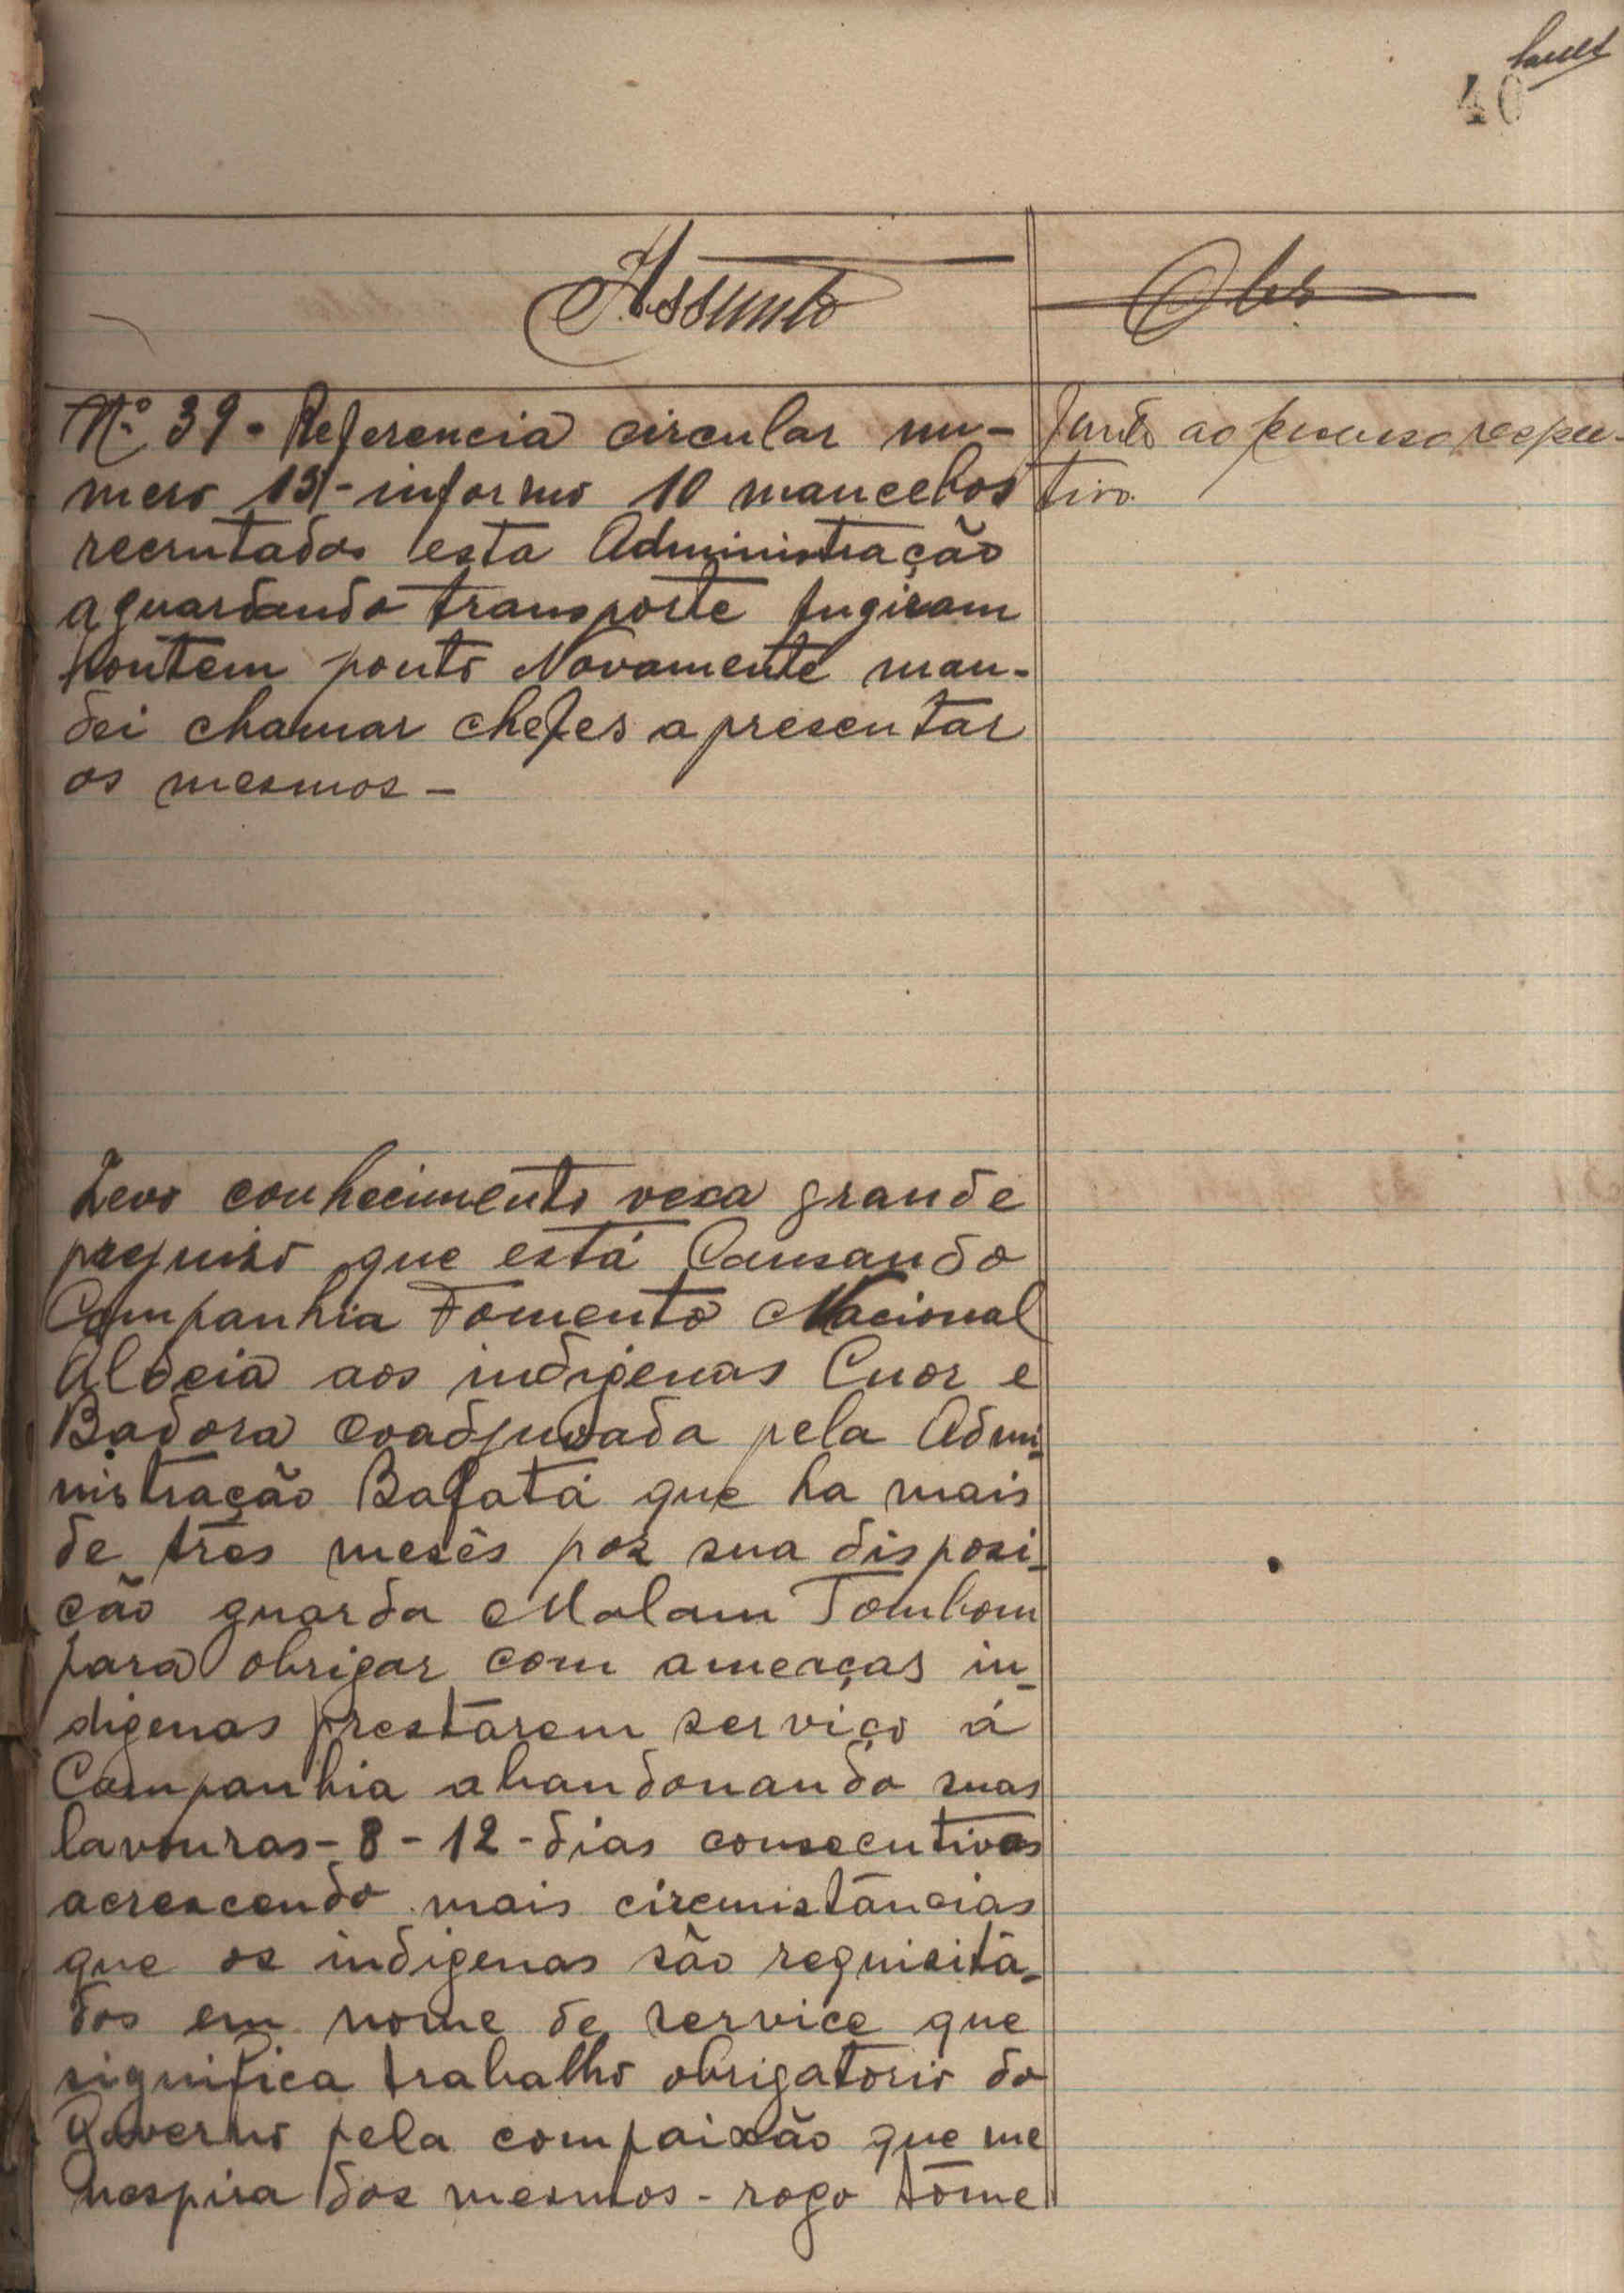 40
Assunto
Obs
Nº 39 - Referencia circular nu-
mero 15 - informo 10 mancebos
recrutados esta Administração
aguardando transporte fugiram
hontem ponto Novamente man-
dei chamar chefes apresentar
os mesmos -
Junto ao processo respec-
tivo.
Levo conhecimento vexa grande
prejuiso que está Causando
Companhia Fomento Nacional
Aldeia aos indigenas Cuor e
Badora coadjuvada pela Admi-
nistração Bafatá que ha mais
de três mesês poz sua disposi-
cão guarda Malam Tombom
para obrigar com ameaças in-
digenas prestarem serviço á
Companhia abandonando suas
lavouras - 8 - 12 - dias consecutivos
acrescendo mais circunstâncias
que os indigenas são requisita-
dos em nome de service que
significa trabalho obrigatorio do
Governo pela compaixão que me
inspira dos mesmos - rogo tome